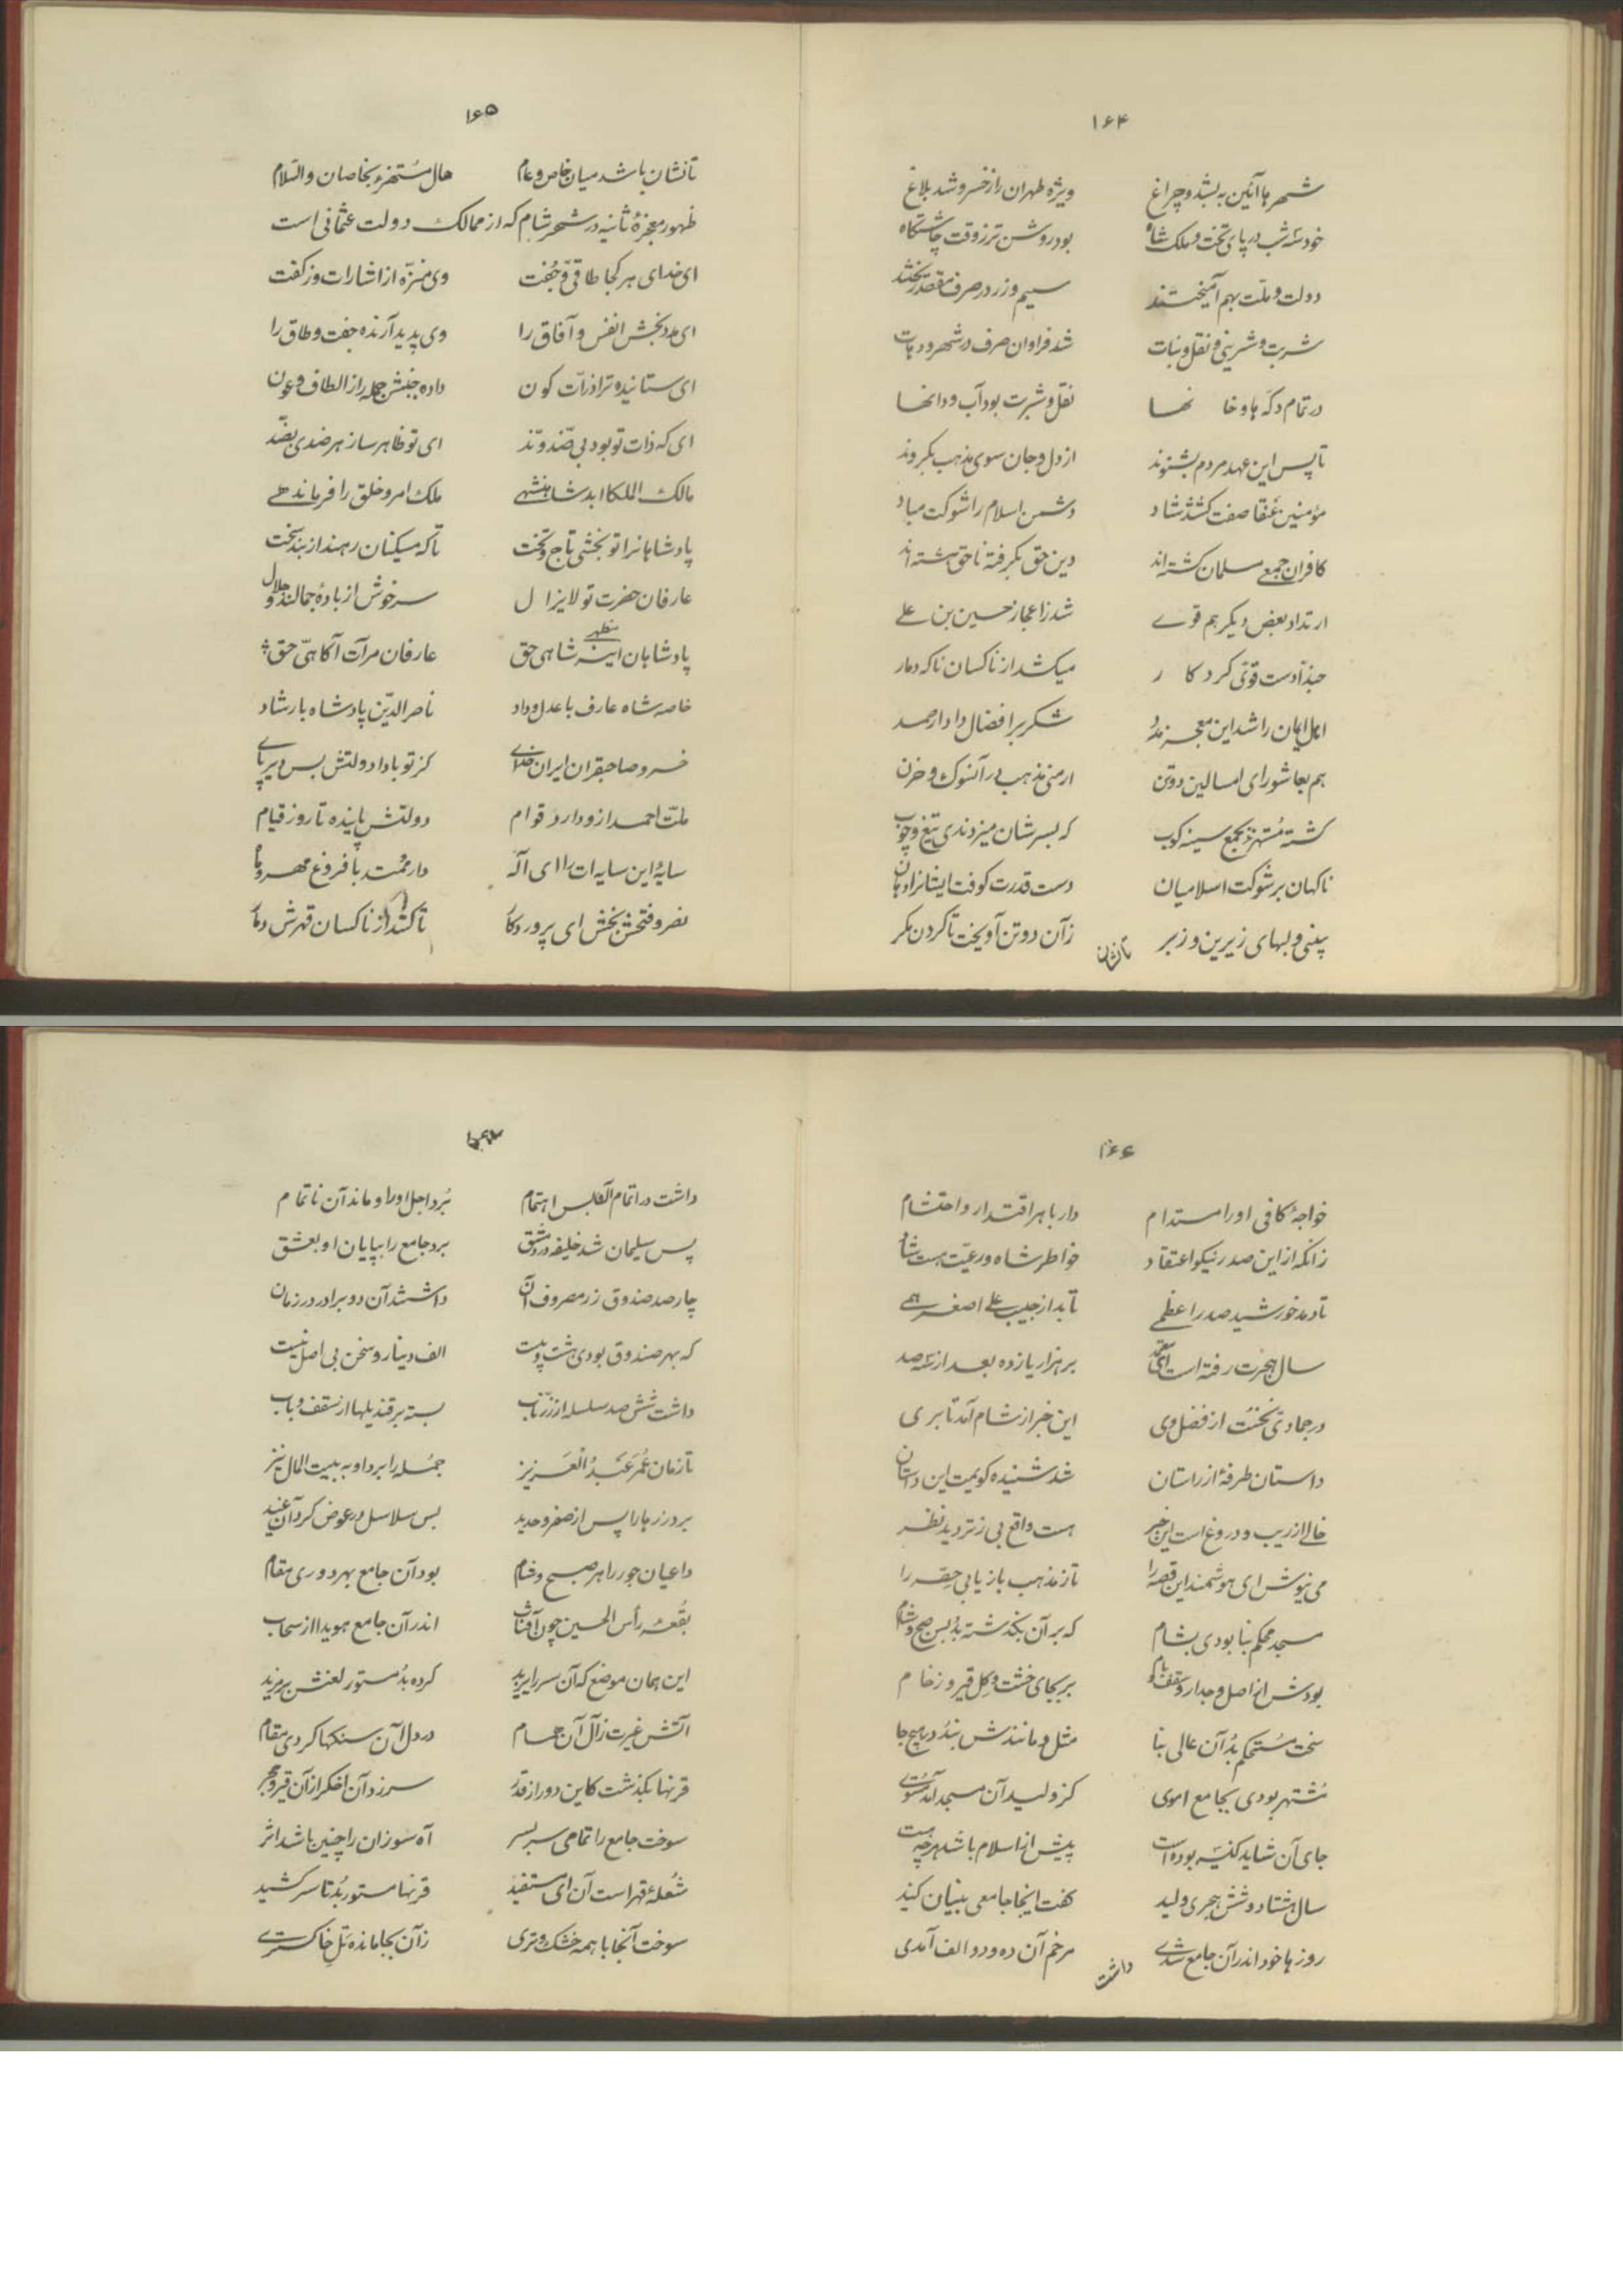 ۱۶۴
شهرها آئین به بشد و چراغ ویژه طهران را ز خسرو شد بلاغ
خود سه شب در پای تخت و ملک شاه بود روشن تر ز وقت چاشتگاه
دولت و ملت بهم آمیختند سیم و زر در صرف مقصد ریختند
شربت و شرینی و نقل و نبات شد فراوان صرف در شهر و دهات
در تمام دکه ها و خانها نقل و شربت بود آب و دانها
تا پس این عهد مردم بشنوند از دل و جان سوی مذهب بگروند
مؤمنین عنقا صفت گشتند شاد دشمن اسلام را شوکت مباد
کافران جمعی مسلمان گشته اند دین حق بگرفته ناحق هشته اند
ارتداد بعض دیگر هم قوی شد ز اعجاز حسین بن علی
حبذا دست قوی کردکار میکشد از ناکسان ناگه دمار
اهل ایمان را شد این معجز مدد شکر بر افضال دادار صمد
هم بعاشورای امسالین دو تن ارمنی مذهب در آنسوک و حزن
گشته مستهزء بجمع سینه کوب که بسرشان میزدندی تیغ و چوب
ناگهان بر شوکت اسلامیان دست قدرت کوفت ایشانرا دهان
بینی و لبهای زیرین و زبر زآن دو تن آویخت تا گردن مگر
تا نشان
۱۶۵
تا نشان باشد میان خاص و عام حال مستهزء بخاصان والسلام
ظهور معجزهٔ ثانیه در شهر شام که از ممالک دولت عثمانی است
ای خدای هر کجا طاقی و جفت وی منزه از اشارات و ز گفت
ای مدد بخش انفس و آفاق را وی پدید آرنده جفت و طاق را
ای ستاینده ترا ذرات کون داده جنبش جمله را ز الطاف و عون
ای که ذات تو بود بی ضد و ند ای تو ظاهر ساز هر ضدی بضد
مالک الملکا ابد شاهنشهی ملک امر و خلق را فرماندهی
پادشاهانرا تو بخشی تاج و تخت تا که مسکینان رهند از بند سخت
عارفان حضرت تو لایزال سرخوش از بادهٔ جمالند و جلال
پادشاهان مظهر شاهی حق عارفان مرآت آگاهی حق
خاصه شاه عارف با عدل و داد ناصر الدین پادشاه با رشاد
خسرو صاحبقران ایران خدای کز تو بادا دولتش بس دیر پای
ملت احمد از و دارد قوام دولتش پاینده تا روز قیام
سایهٔ این سایه ات را ای آله دار ممتد با فروغ مهر و ماه
نصر و فتحش بخش ای پروردگار تا کشد از ناکسان قهرش دمار
۱۶۶
خواجهٔ کافی اورا مستدام دار با هر اقتدار و احتشام
زانکه از این صدر نیکو اعتقاد خواطر شاه و رعیت هست شاد
تا دمد خورشید صدر اعظمی تابد از جیب علی اصغر همی
سال هجرت رفته است ای معتمد بر هزار یازده بعد از سه صد
در جمادی نخست از فضل وی این خبر از شام آمد تا بری
داستان طرفهٔ از راستان شد شنیده گویمت این داستان
خالی از ریب و دروغ است این خبر هست واقع بی ز تردید نظر
می نیوش ای هوشمند این قصه را تا ز مذهب باز یابی حصه را
مسجد محکم بنا بودی بشام که بر آن بگذشته بد بس صبح و شام
بودش از اصل و جدار و سقف و بام بر بجای خشت و گل قیر و رخام
سخت مستحکم بد آن عالی بنا مثل و مانندش نبد در هیچ جا
مشتهر بودی بجامع اموی کز ولید آن مسجد آمد مستوی
جای آن شاید کنیسه بوده است پیش از اسلام باشد هرچه هست
سال هشتاد و شش هجری ولید گفت اینجا جامعی بنیان کنید
روزها خود اندر آن جامع شدی مرخم آن ده و دو الف آمدی
داشت
۱۶۷
داشت در اتمام آنکابس اهتمام برد اجل اورا و ماند آن ناتمام
پس سلیمان شد خلیفه در دمشق برد جامع را بپایان او بعشق
چار صد صندوق زر مصروف آن داشتند آن دو برادر در زمان
که بهر صندوق بودی هشت و بیست الف دینار و سخن بی اصل نیست
داشت شش صد سلسله از زر ناب بسته بر قندیلها از سقف و باب
تا زمان عمر عبد العزیز جمله را برد او به بیت المال نیز
برد زرها را پس از صفر و حدید بس سلاسل در عوض کرد آن عنید
داعیان جور را هر صبح و شام بود آن جامع بهر دوری مقام
بقعه رأس الحسین چون آفتاب اندر آن جامع هویدا از سحاب
این همان موضع که آن سر را یزید کرده بد مستور لعنش بر مزید
آتش غیرت ز آل آن همام در دل آن سنگها کردی مقام
قرنها بگذشت کاین دور از قدر سر زد آن اخگر از آن قیر و حجر
سوخت جامع را تمامی سر بسر آه سوزان را چنین باشد اثر
شعلهٔ قهر است آن ای مستفید قرنها مستور بد تا سر کشید
سوخت آنجا با همه خشک و تری زآن بجا مانده تل خاکستری